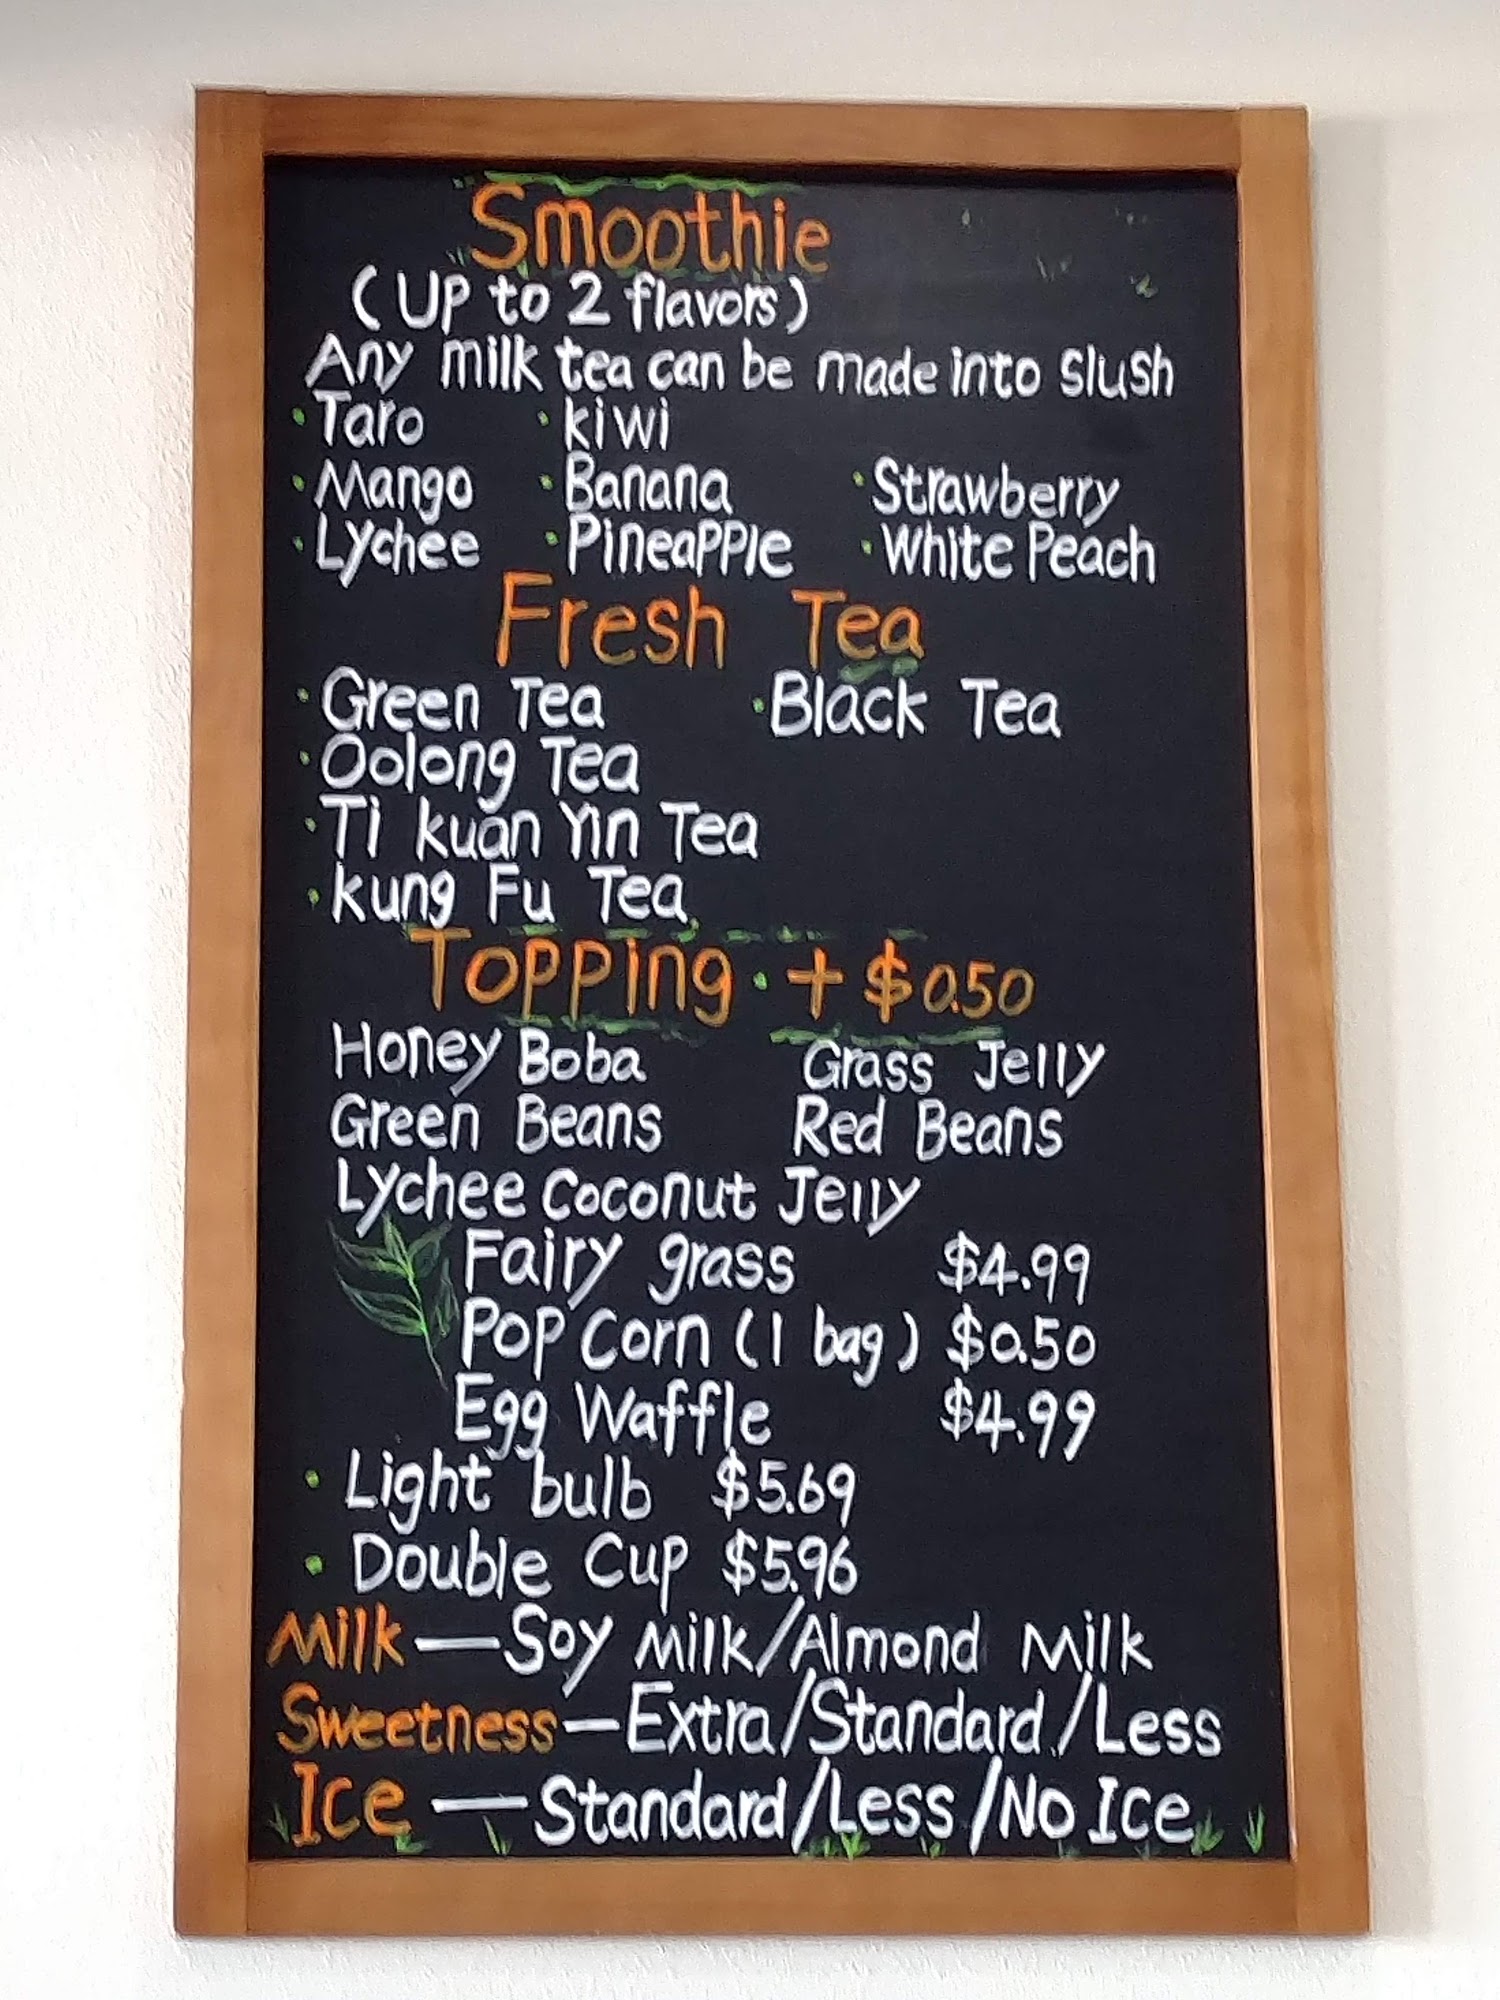 Smoothie
(Up to 2 flavors)
Any milk tea can be made into slush
· Taro · kiwi
· Mango · Banana · Strawberry
· Lychee · Pineapple · White Peach
Fresh Tea
· Green Tea · Black Tea
· Oolong Tea
· Ti kuan Yin Tea
· kung Fu Tea
Topping · + $0.50
Honey Boba Grass Jelly
Green Beans Red Beans
Lychee Coconut Jelly
Fairy grass $4.99
Pop Corn (1 bag) $0.50
Egg Waffle $4.99
· Light bulb $5.69
· Double Cup $5.96
Milk — Soy Milk/Almond Milk
Sweetness — Extra/Standard/Less
Ice — Standard/Less/No Ice